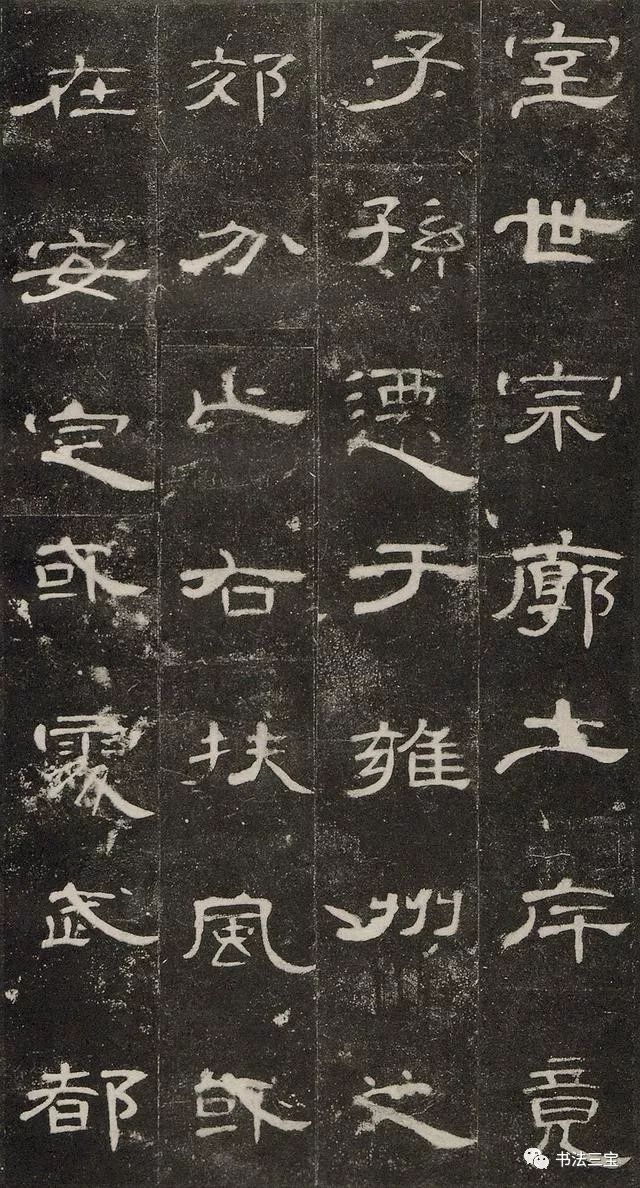 室世宗廓土斥竟
子孫遷于雍州之
郊分止右扶風或
在安定或處武都
书法三宝